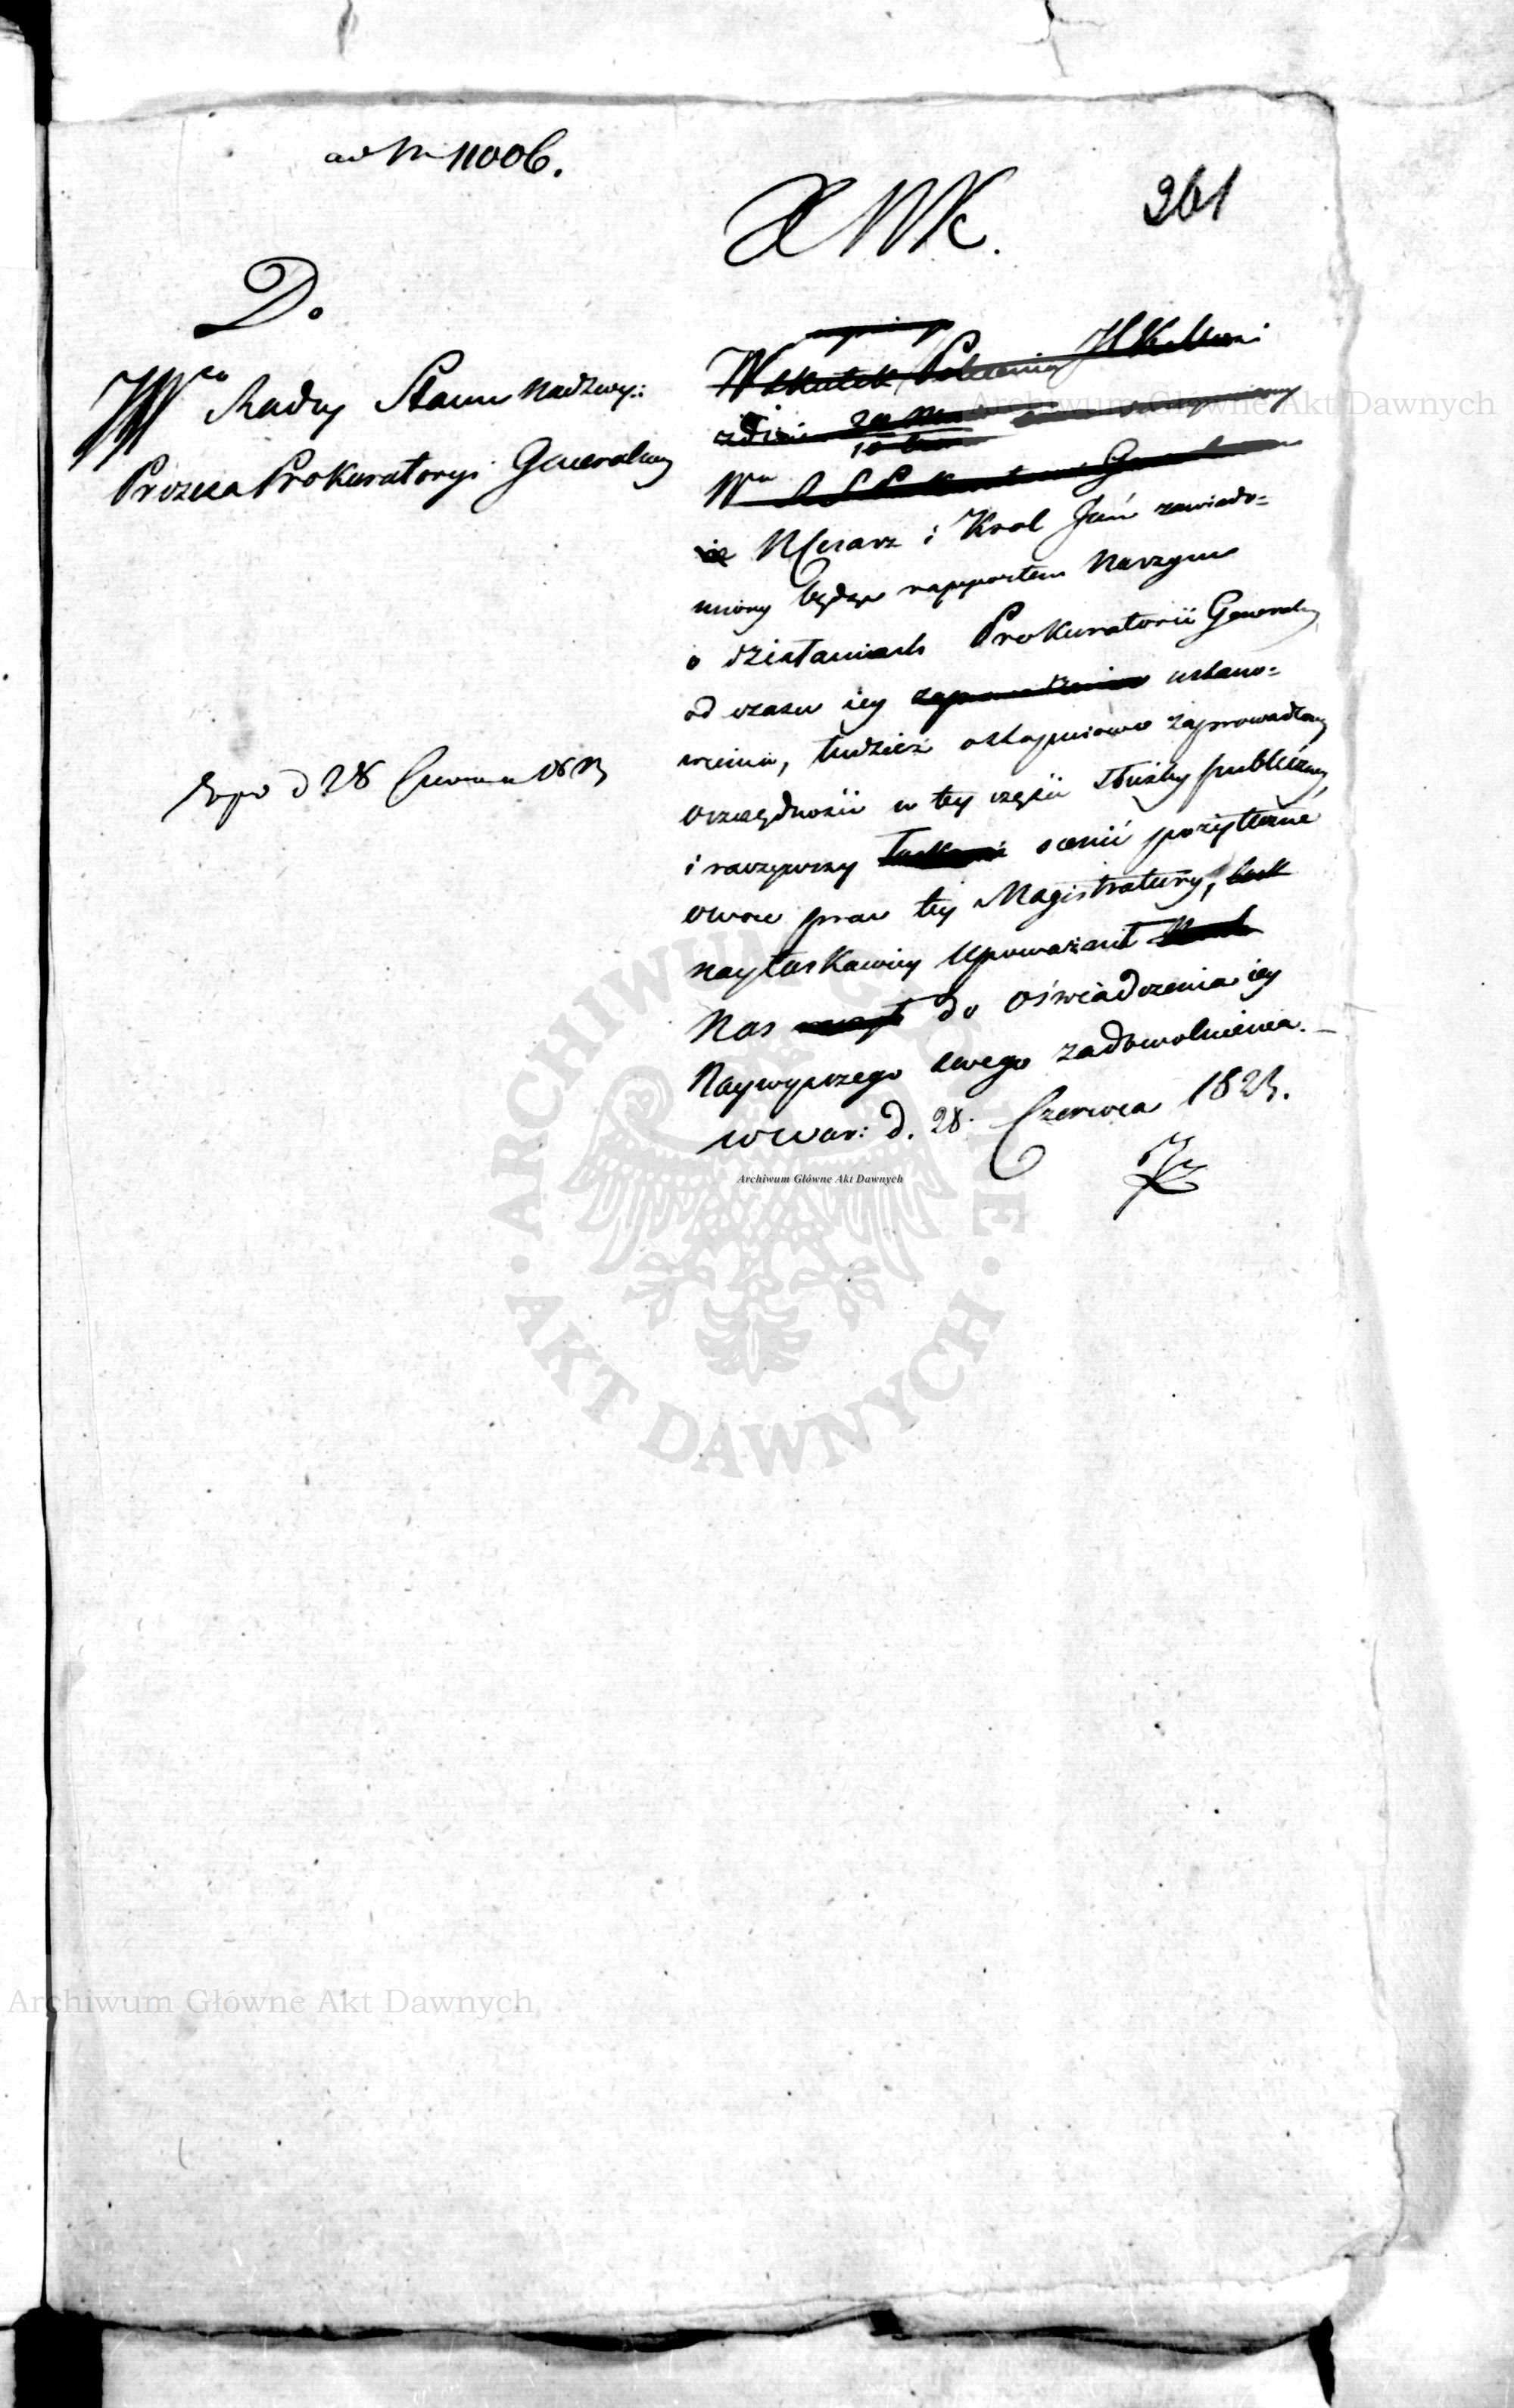 ad Nr 11006.
261
X N K.
D.
JW^o Radcy Stanu Nadzwy:
Prezesa Prokuratoryi Generalney
Wskutek Polecenia
N Cesarz i Krol Jmć zawiado=
miony będąc rapportem Naszym
o działaniach Prokuratorii Generalney
od czasu iey zaprowadzenia ustano=
wienia, tudzież o stopniowo zaprowadzoney
oszczędności w tey części służby publiczney,
i raczywszy ocenić pożyteczne
owoce prac tey Magistratury,
nayłaskawiey upoważnił
Nas do oświadczenia iey
Naywyższego swego zadowolnienia. —
w War: d. 28. Czerwca 1823.
Exp d 28 Czerwca 1823
Archiwum Główne Akt Dawnych
Archiwum Główne Akt Dawnych
Archiwum Główne Akt Dawnych
ARCHIWUM GŁÓWNE AKT DAWNYCH